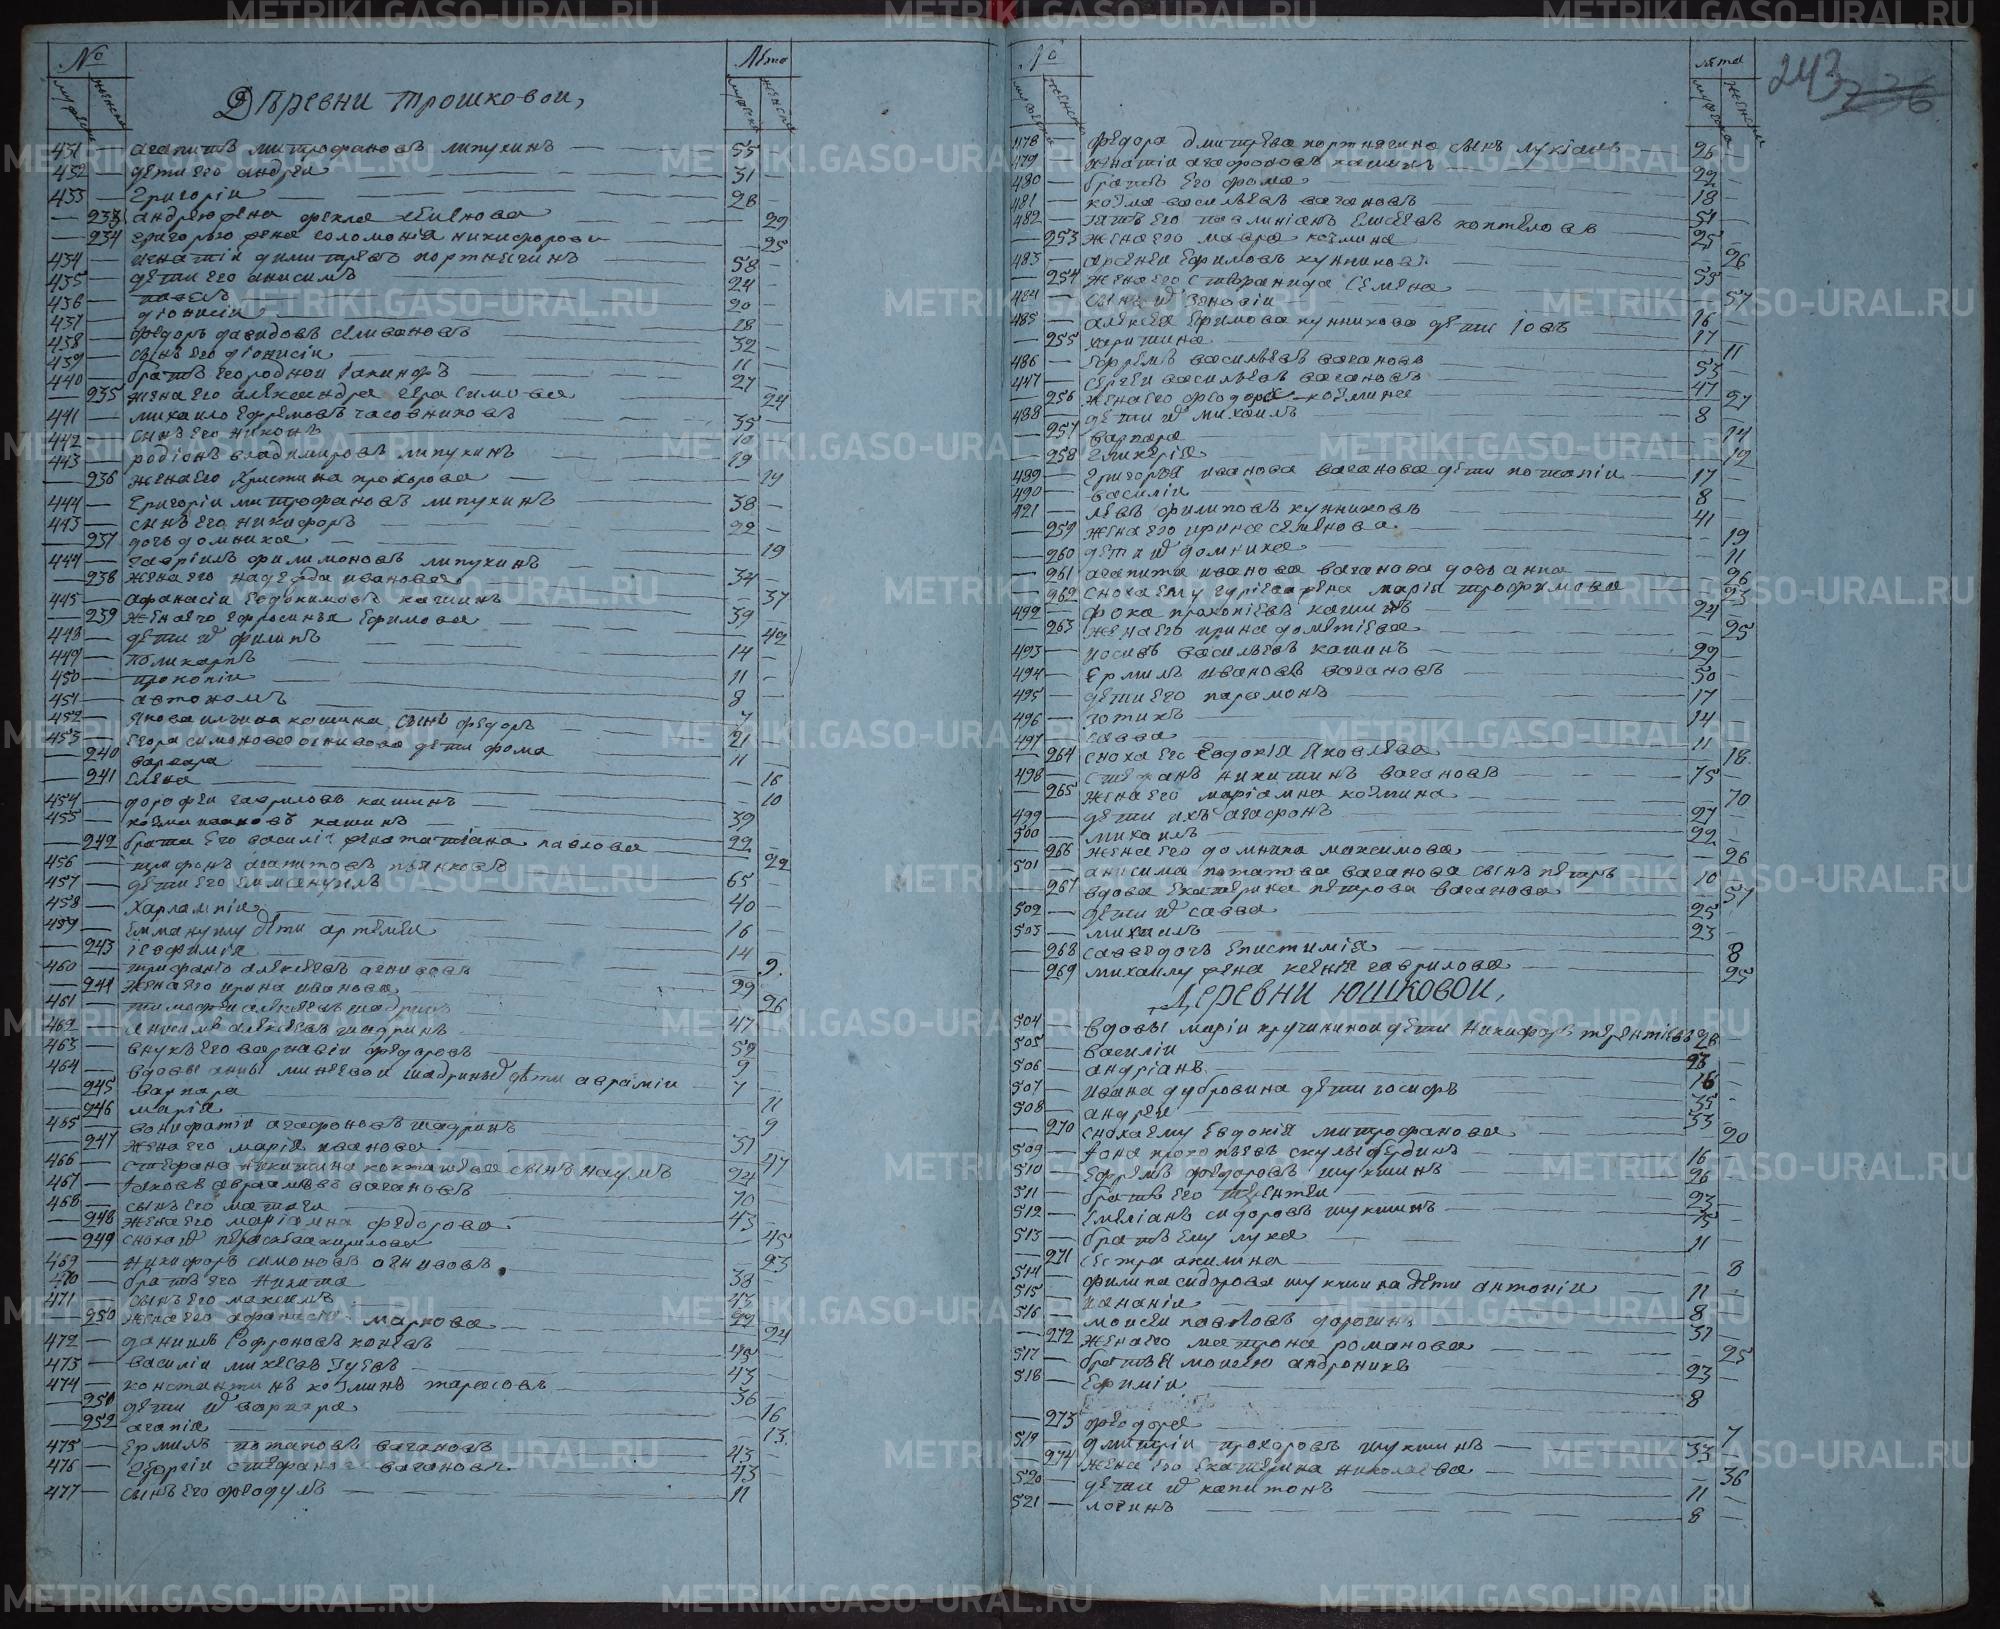 №
Лѣта
мужеска
женска
мужеска
женска
Деревни трошковои,
431 — агапитъ митрофановъ липухинъ — 55 —
432 — дѣти его андреи — 31 —
433 — григоріи — 28 —
— 233 андрею жена фекла — 29
— 234 григорью жена соломонія никифорова — 25
434 — игнатіи димитревъ портнягинъ — 58 —
435 — дѣти его анисимъ — 24 —
436 — павелъ — 20 —
437 — діонисіи — 18 —
438 — федоръ давидовъ селивановъ — 32 —
439 — сынъ его діонисіи — 11 —
440 — братъ его роднои іакинфъ — 27 —
— 235 жена его александра герасимова — 24
441 — михаило ефремовъ часовниковъ — 35 —
442 — сынъ его никонъ — 10 —
443 — родіонъ владимировъ липухинъ — 19 —
— 236 жена его христина прохорова — 19
444 — григоріи митрофановъ липухинъ — 38 —
443 — сынъ его никифоръ — 22 —
— 237 дочь домника — 19
444 — гавріилъ филимоновъ липухинъ — 34 —
— 238 жена его надежда иванова — 37
445 — афанасіи евдокимовъ кашинъ — 39 —
— 239 жена его ефросинья ефимова — 42
448 — дѣти и филипъ — 14 —
449 — поликарпъ — 11 —
450 — прокопіи — 8 —
451 — автономъ — 7
452 — якова ильина кашина сынъ федоръ — 21
453 — егора симонова огнивова дѣти фома — 11 —
— 240 варвара — 16
— 241 елена — 10
454 — дорофеи гавриловъ кашинъ — 39 —
455 — козма ивановъ кашинъ — 22 —
— 242 брата его василія жена татіана павлова — 22
456 — трифонъ агапитовъ пьянковъ — 65 —
457 — дѣти его еммануилъ — 40 —
458 — харлампіи — 16 —
459 — еммануилу дѣти артемеи — 14
— 243 іевфимія — 9.
460 — трифанъ алексеевъ огнивовъ — 29
— 244 жена его ирина иванова — 26
461 — тимофеи алексеевъ шадринъ — 47 —
462 — анисимъ алексеевъ шадринъ — 52
463 — внукъ его варнавіи федоровъ — 9
464 — вдовы анны минеевои шадриныхъ дѣти аврамии — 7 —
— 245 варвара — 11
— 246 марія — 9
465 — вонифатіи агафоновъ шадринъ — 51
— 247 жена его марія иванова — 47
466 — стефана никитина коктышева сынъ наумъ — 24
467 — іаковъ авраамовъ вагановъ — 70 —
468 — сынъ его матфеи — 43 —
— 248 жена его маріамна федорова — 45
— 249 сноха и параскева кирилова — 23
469 — никифоръ симоновъ огнивовъ — 38 —
470 — братъ его никита — 43 —
471 — сынъ его максимъ — 22 —
— 250 жена его афанасія маркова — 24
472 — даниилъ софроновъ коневъ — 45 —
473 — василіи михеевъ гуевъ — 43 —
474 — константинъ козминъ тарасовъ — 36 —
— 251 дѣти и варвара — 16
— 252 агапія — 13.
475 — ермилъ потаповъ вагановъ — 43 —
476 — георгіи стефановъ вагановъ — 43 —
477 — сынъ его феодулъ — 11
№
лѣта
мужеска
женска
мужеска
женска
243
236
478 — федора дмитрева портнягина сынъ лукіанъ — 26 —
479 — игнатіи агафоновъ кашинъ — 22 —
480 — братъ его фома — 18 —
481 — козма васильевъ вагановъ — 51 —
482 — зять его павлиніанъ елисеевъ коптеловъ — 25 —
— 253 жена его мавра козмина — 26
483 — арсенеи ефимовъ кунниковъ — 55
— 254 жена его стефанида семена — 57
484 — сынъ и зеновіи — 16 —
485 — алексея ефимова кунникова дѣти іовъ — 17 —
— 255 харитина — 11
486 — ефремъ васильевъ вагановъ — 53 —
447 — сергеи васильевъ вагановъ — 47
— 256 жена его феодора козмина — 27
488 — дѣти и михаилъ — 8 —
— 257 варвара — 14
— 258 гликерія — 12
489 — григорья иванова ваганова дѣти потапіи — 17 —
490 — василіи — 8 —
421 — левъ филиповъ кунниковъ — 41
— 259 жена его ирина семенова — 19
— 260 дѣти и домника — 11
— 261 агапита иванова ваганова дочь анна — 26
— 262 сноха ему марія трофимова — 23
492 — фока прокопіевъ кашинъ — 24
— 263 жена его ирина дометіева — 25
493 — иосивъ васильевъ кашинъ — 29 —
494 — ермилъ ивановъ вагановъ — 50 —
495 — дѣти его парамонъ — 17
496 — зотикъ — 14
497 — савва — 11
— 264 сноха его евдокія яковлева — 18.
498 — стефанъ никитинъ вагановъ — 75 —
— 265 жена его маріамна козмина — 70
499 — дѣти ихъ агафонъ — 27 —
500 — михаилъ — 22 —
— 266 жена его домника максимова — 26
501 — анисима потапова ваганова сынъ петръ — 10 —
— 267 вдова екатерина петрова ваганова — 57
502 — дѣти и савва — 25 —
503 — михаилъ — 23 —
— 268 савве дочь епистимія — 8
— 269 михаилу жена ксенія гаврилова — 25
Деревни юшковои,
504 — вдовы маріи кручининои дѣти никифоръ терентіевъ 26 —
505 — василіи — 23 —
506 — андріанъ — 16 —
507 — ивана дубровина дѣти іосифъ — 35 —
508 — андреи — 33 —
— 270 сноха ему евдокія митрофанова — 20
509 — іона прокопьевъ скулыбердинъ — 16 —
510 — ефремъ федоровъ шукшинъ — 26
511 — братъ его терентеи — 23
512 — емеліанъ сидоровъ шукшинъ — 15
513 — братъ ему лука — 11
— 271 сестра акилина — 8
514 — филипа сидорова шукшина дѣти антоніи — 11 —
515 — ананіи — 8 —
516 — моисеи павловъ дорогинъ — 31 —
— 272 жена его матрона романова — 25
517 — братья моисею андроникъ — 23 —
518 — ефиміи — 8
— 273 феодора — 7
519 — дмитріи прохоровъ шукшинъ — 33 —
— 274 жена его екатерина николаева — 36
520 — дѣти и капитонъ — 11 —
521 — логинъ — 8 —